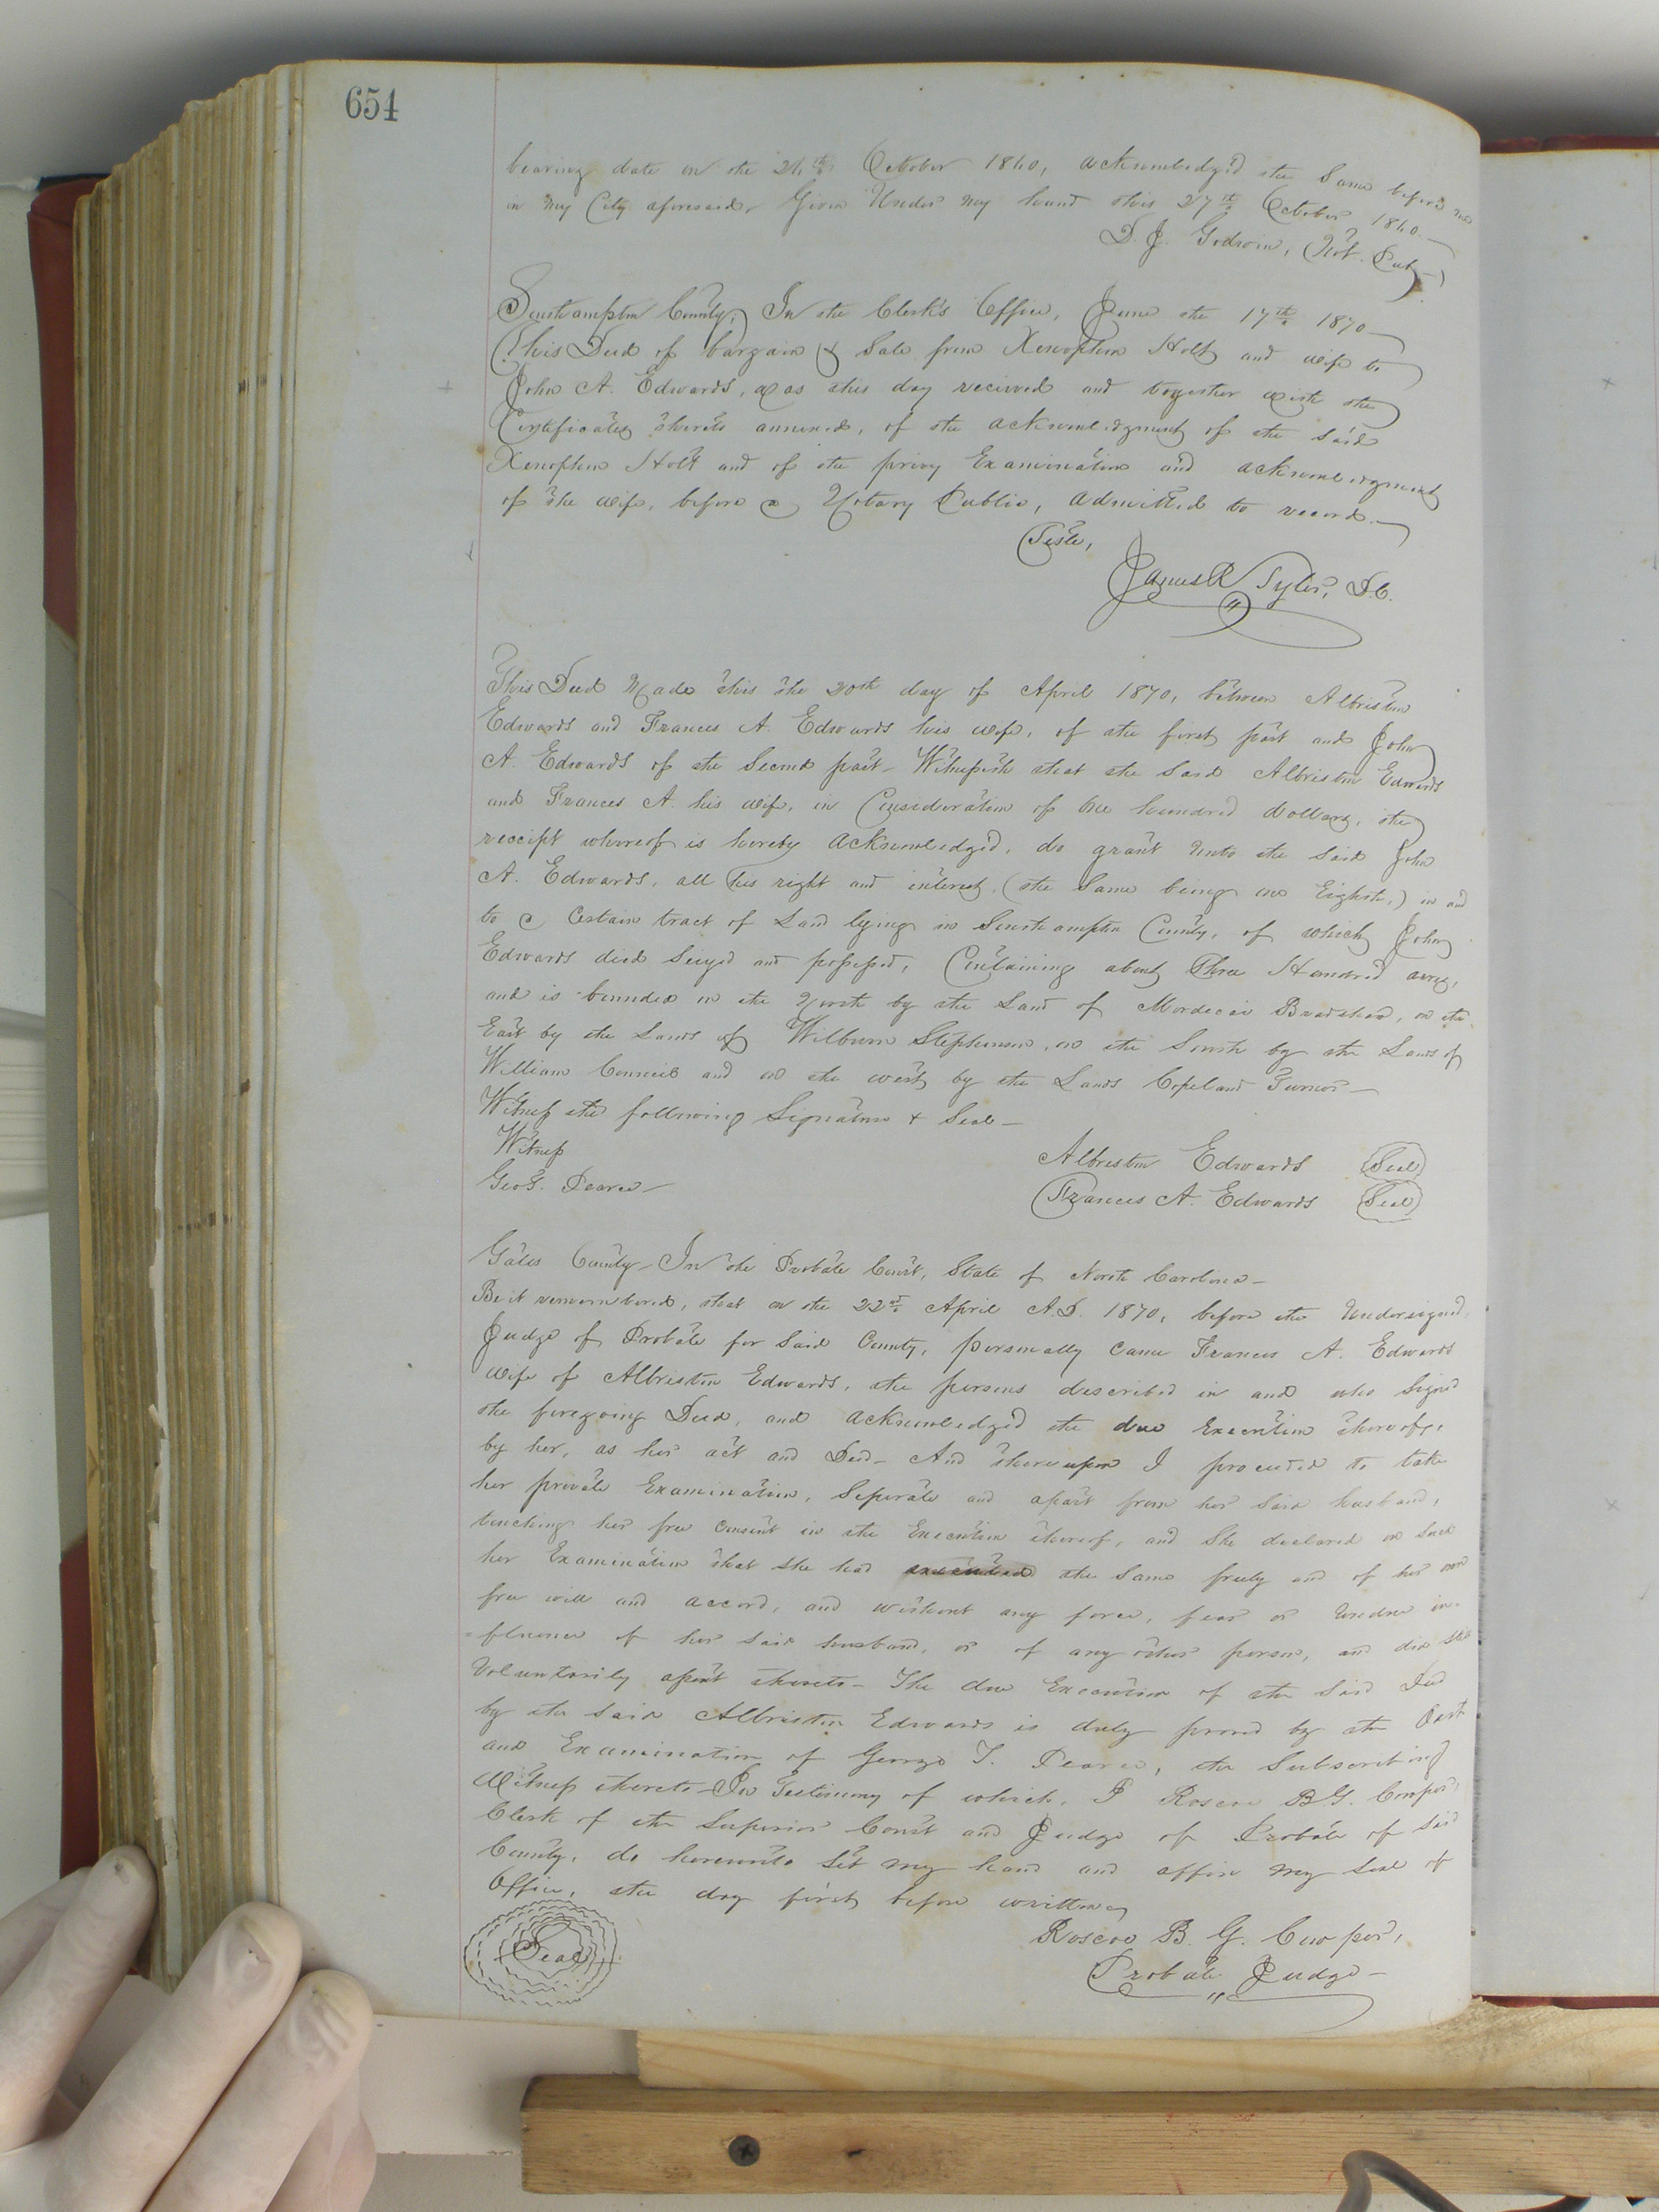 654
bearing date on the 26th October 1860, acknowledg'd the Same before me
in my City aforesaid. Given Under my hand this 27th October 1860.
D. J. Godwin, Not. Pub.
Southampton County; In the Clerk's Office, June the 17th 1870
This Deed of bargain & Sale from Xenophon Holt and wife to
John A. Edwards, was this day received and together with the
Certificates thereto annexed, of the acknowledgment of the said
Xenophon Holt and of the privy Examination and acknowledgment
of the wife, before a Notary Public, admitted to record.
Teste,
James R Tyler, D.C.
This Deed Made this the 20th day of April 1870, between Albriston
Edwards and Frances A. Edwards his wife, of the first part and John
A. Edwards of the Second part - Witnesseth that the Said Albriston Edwards
and Frances A. his wife, in Consideration of One hundred dollars, the
receipt whereof is hereby acknowledged, do grant Unto the said John
A. Edwards, all his right and interest, (the Same being one Eighth,) in and
to a Certain tract of Land lying in Southampton County, of which John
Edwards died Seized and possessed, Containing about Three Hundred acres,
and is bounded on the North by the Land of Mordecai Bradshaw, on the
East by the Lands of Wilburn Stephenson, on the South by the Lands of
William Council and on the west by the Lands Copeland Turner -
Witness the following Signature & Seal -
Witness
Geo T. Pearce -
Albriston Edwards Seal
Frances A. Edwards Seal
Gates County - In the Probate Court, State of North Carolina -
Be it remembered, that on the 22nd April A.D. 1870, before the Undersigned
Judge of Probate for Said County, personally came Frances A. Edwards
wife of Albriston Edwards, the persons described in and who Signed
the foregoing Deed, and acknowledged the due Execution thereof,
by her, as her act and Deed - And thereupon I proceeded to take
her private Examination, Seperate and apart from her Said husband,
touching her free Consent in the Execution thereof, and She declared on Such
her Examination that She had executed the Same freely and of her own
free will and accord, and without any force, fear or Undue in-
=fluence of her Said husband, or of any other person, and did still
Voluntarily assent thereto - The due Execution of the Said Deed
by the Said Albriston Edwards is duly proved by the Oath
and Examination of George T. Pearce, the Subscribing
Witness thereto - In Testimony of which, I Roscoe B.G. Cowper,
Clerk of the Superior Court and Judge of Probate of Said
County, do hereunto Set my hand and affix my Seal of
Office, the day first before written
Seal
Roscoe B. G. Cowper,
Probate Judge -